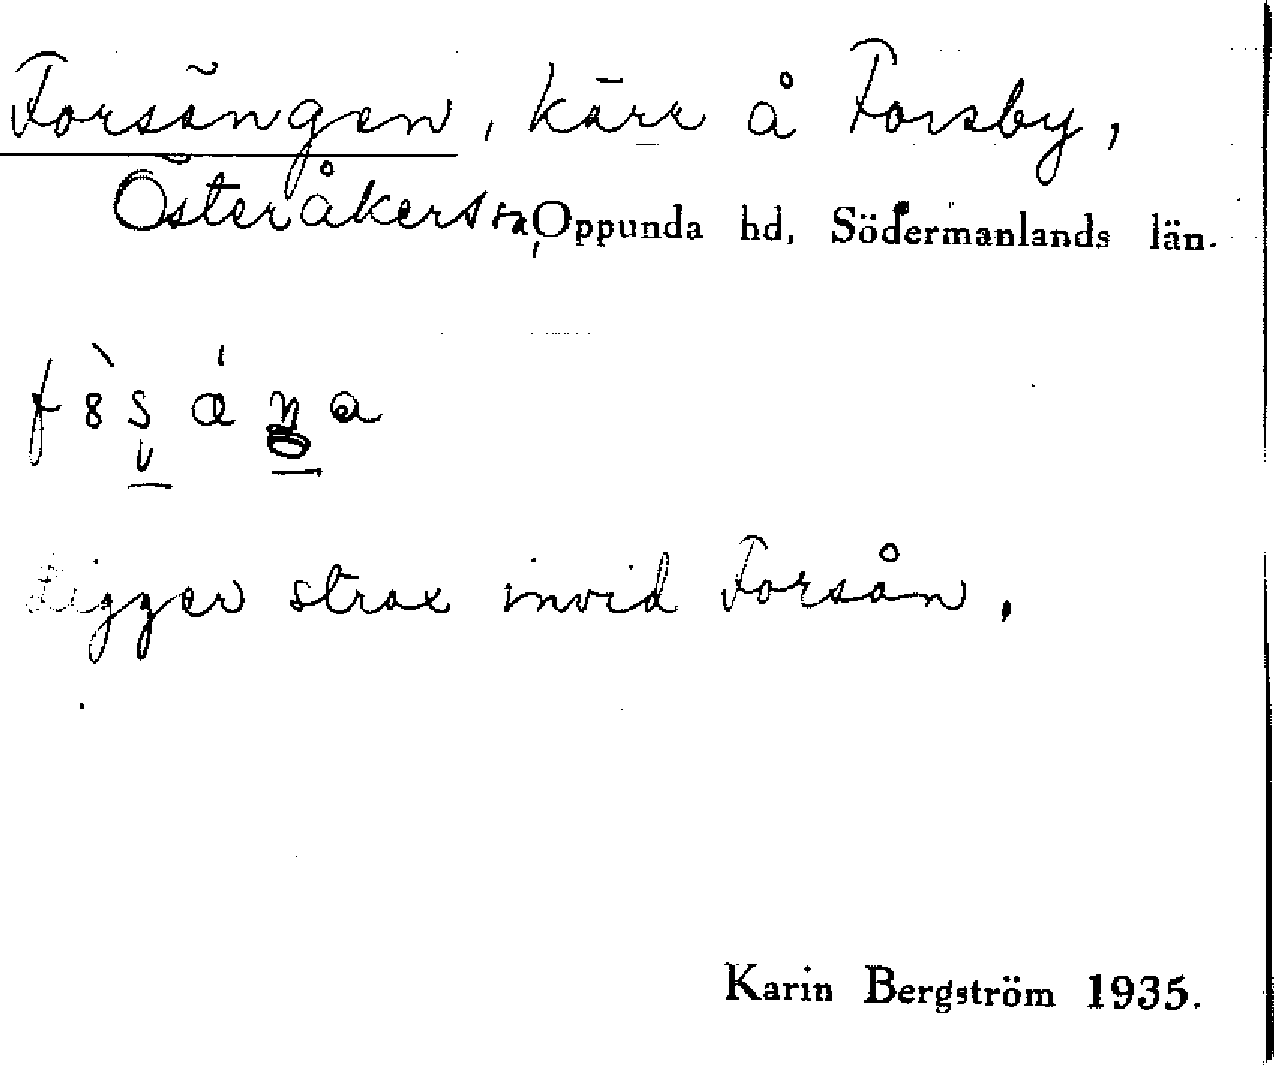 Forsängen, kärr å Forsby,
Österåkers sn, Oppunda hd, Södermanlands län.
Ligger strax invid Forsån.
Karin Bergström 1935.